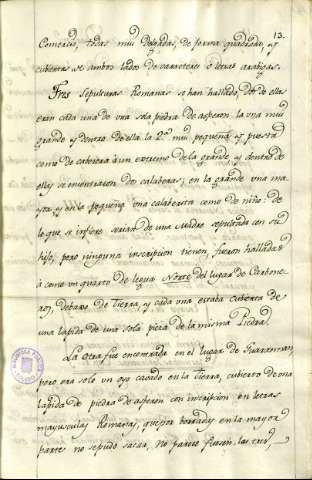 13.
Comercio, todas mui delgadas, de forma quadrada, y
cubiertas de ambos lados de carreteres ó letras arabigas.
Tres sepulturas Romanas se han hallado, dos de ellas
eran cada una de una sola piedra de asperon. la una mui
grande y dentro de ella la 2.ª mui pequeña y puesta
como de cabecera à un extremo de la grande, y dentro de
ellas se encontraron dos calaberas, en la grande una ma-
yor, y en la pequeña una calaberita como de niño: de
lo que se infiere serian de una Madre sepultada con su
hijo, pero ninguna inscripcion tienen, fueron halladas
à como un quarto de legua Norte del lugar de Carbone-
ras, debaxo de Tierra, y cada una estaba cubierta de
una lapida de una sola pieza de la misma Piedra.
La otra fue encontrada en el lugar de
pero era solo un oyo cabado en la Tierra, cubierto de una
lapida de piedra de asperon con inscripcion en letras
mayusculas Romanas, que por borradas en la mayor
parte no se pudo sacar, no parece fuesen, las tres,